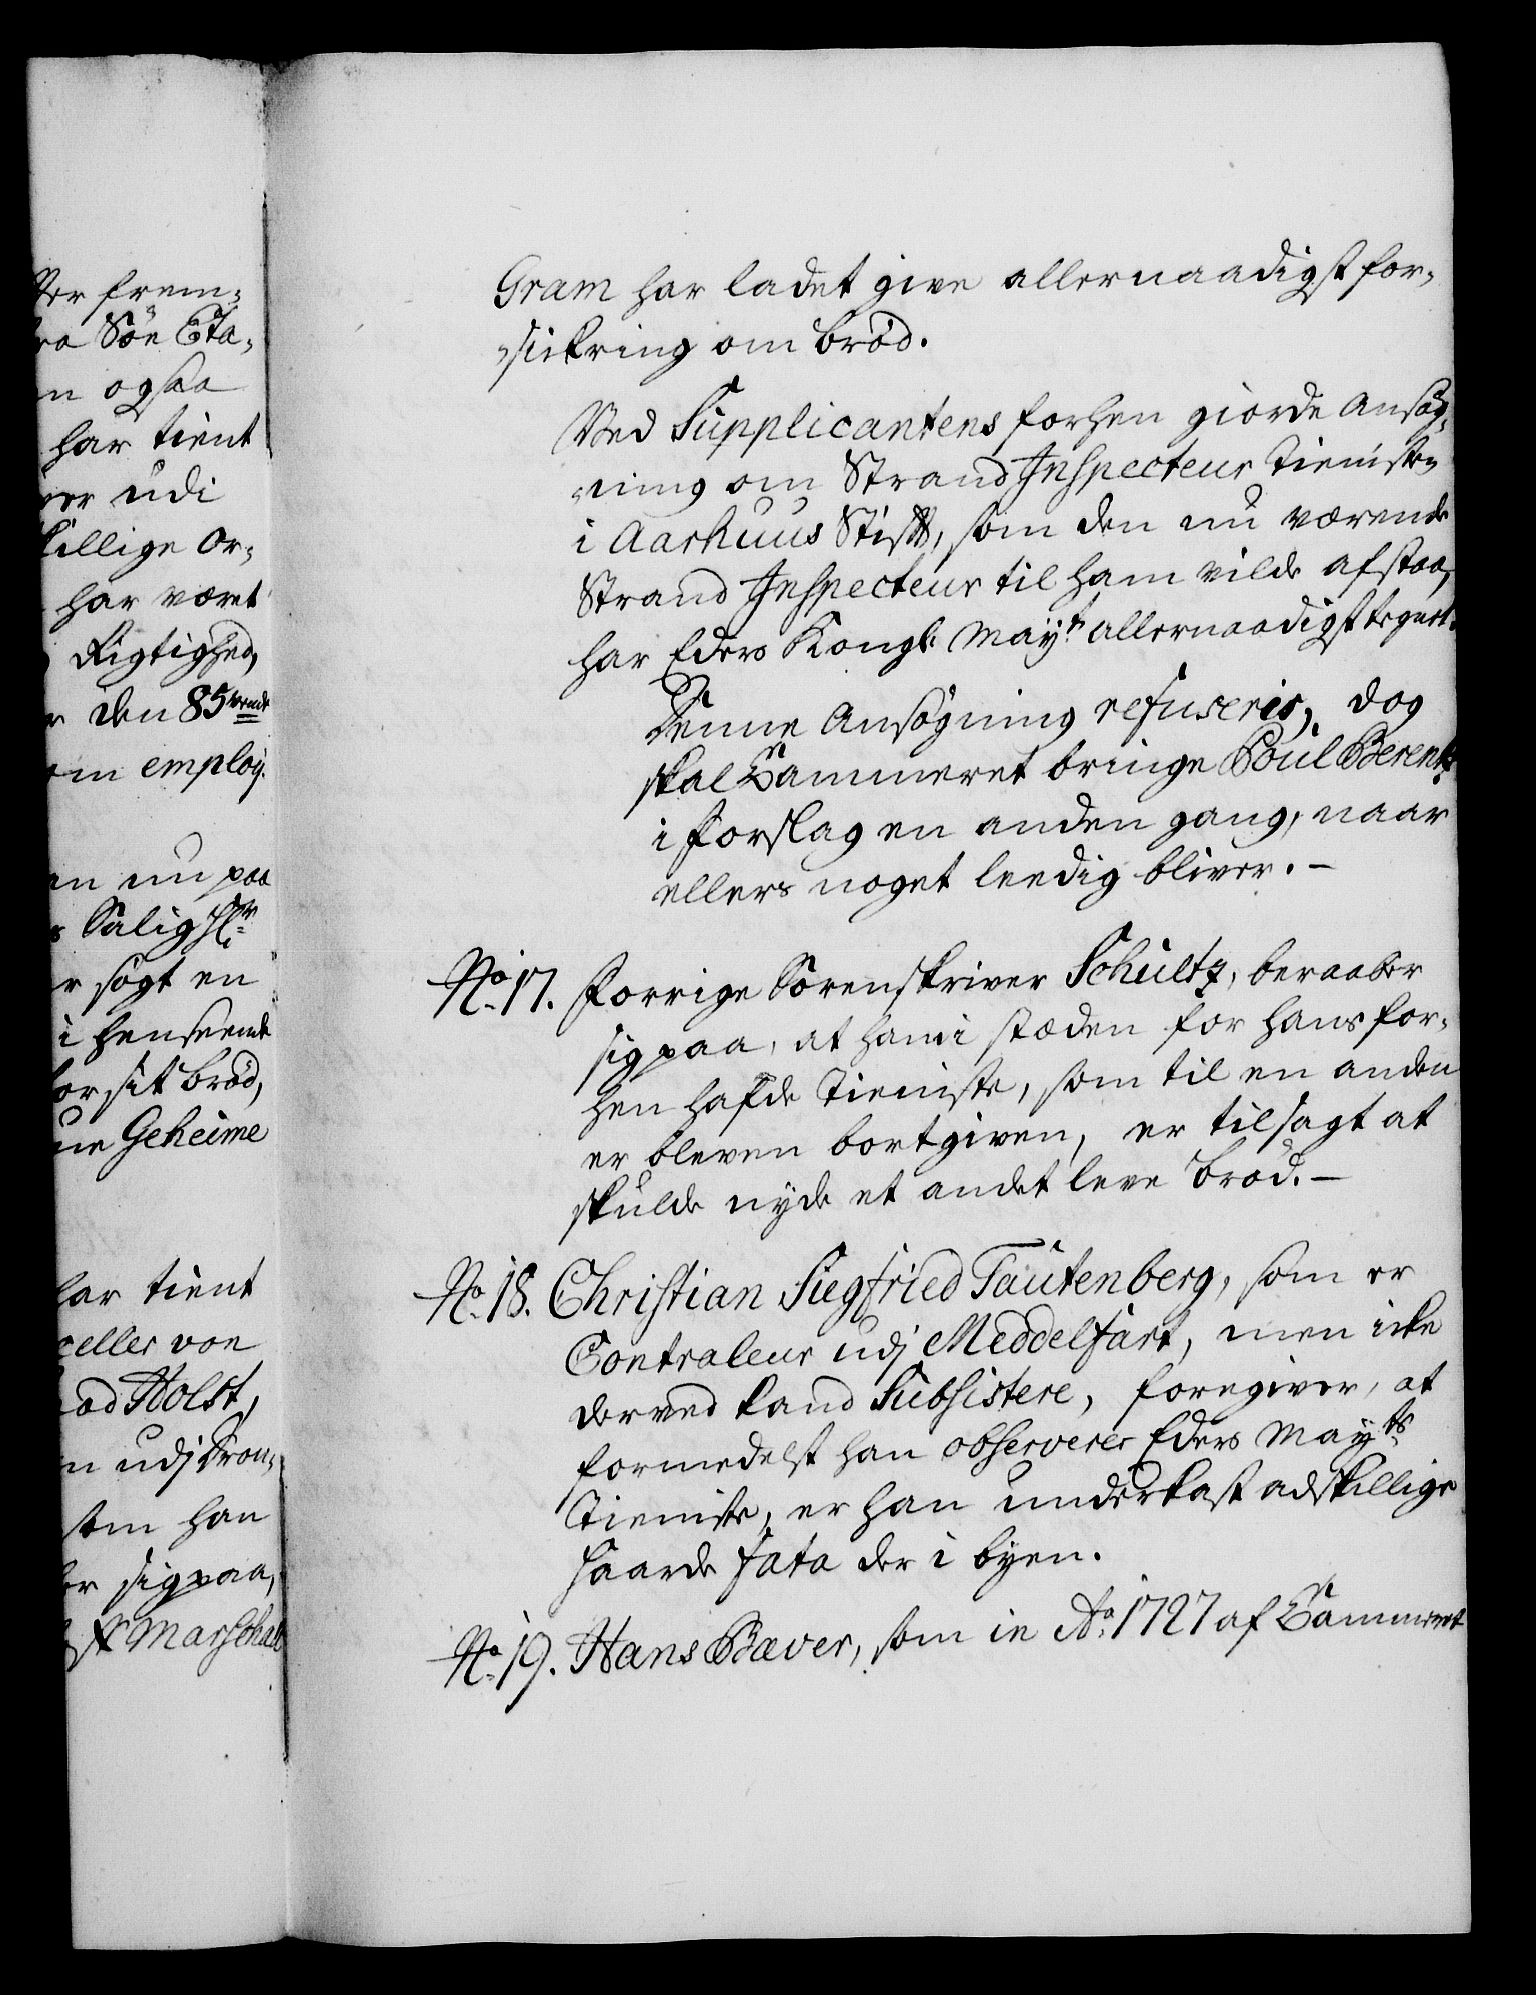 ter frem-
ra Sön Eta-
n ogsaa
har tient
udi
killige Or-
har været
Rigtighed,
r den 85tende
om employ.
en nu paa
Salig Hr
r sögt en
i henseende
for sit bröd,
ne Geheime
har tient
celler von
od Holst,
n udj Tron-
som han
ber sig paa,
st Marschal
Gram har ladet give allernaadigst for-
sickring om bröd.
Ved Supplicantens forhen giorde Ansög-
ning om Strand Inspecteur Tieniste
i Aarhuus Stift, som den nu værende
Strand Inspecteur til ham vilde afstaa,
har Eders Kongl. Mayt. allernaadigst tegnet.
Denne Ansögning refuseris, dog
skal Cammeret bringe Poul Berentz
i forslag en anden gang, naar
ellers noget leedig bliver. -
No. 17. Forrige Sorenskriver Schultz, beraaber
sig paa, at ham i stæden for hans for-
hen hafde Tieniste, som til en anden
er bleven bortgiven, er tilsagt at
skulde nyde et andet leve bröd. -
No. 18. Christian Siegfried Tautenberg, som er
Contraleur udj Meddelfart, men icke
derved kand Subsistere, foregiver, at
formedelst han observerer Eders Mayts.
Tieniste, er han underkast adskillige
haarde fata der i byen.
No. 19. Hans Bæver, som in Ao. 1727 af Cammeret